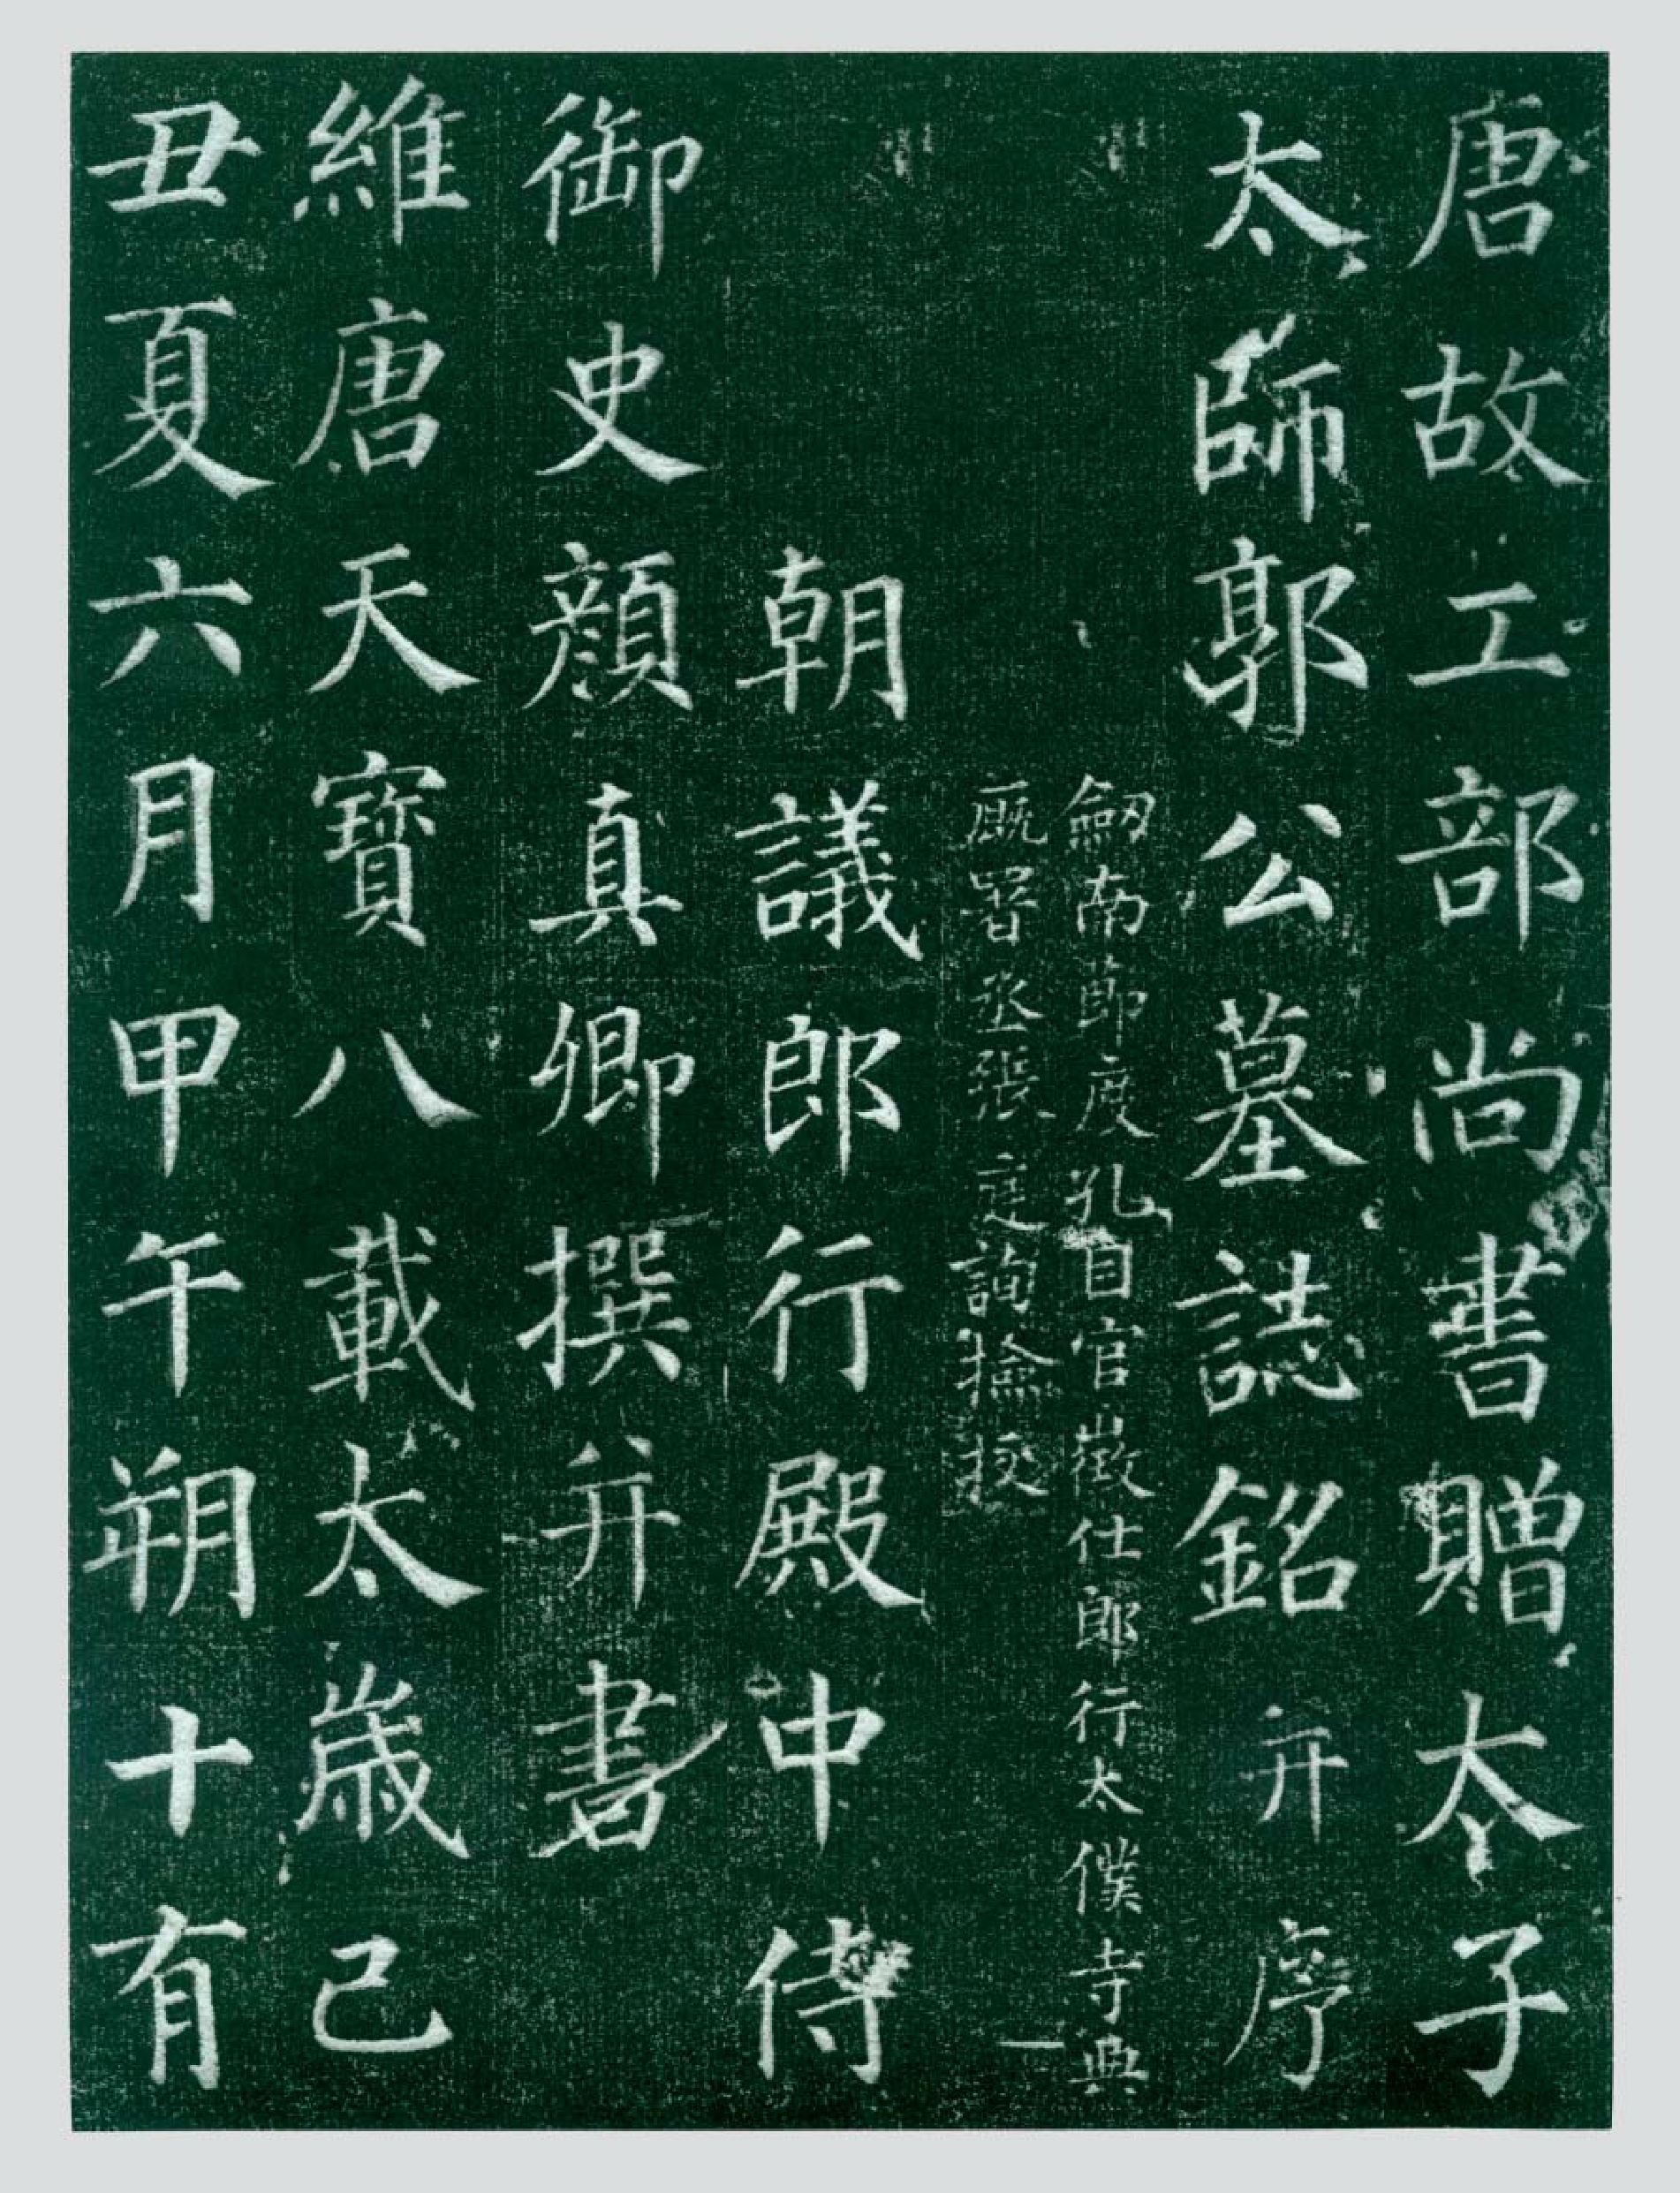 唐故工部尚書贈太子
太師郭公墓誌銘并序
劒南節度孔目官徵仕郎行太僕寺典
廐署丞張庭詢撿挍
朝議郎行殿中侍
御史顔真卿撰并書
維唐天寶八載太歲己
丑夏六月甲午朔十有